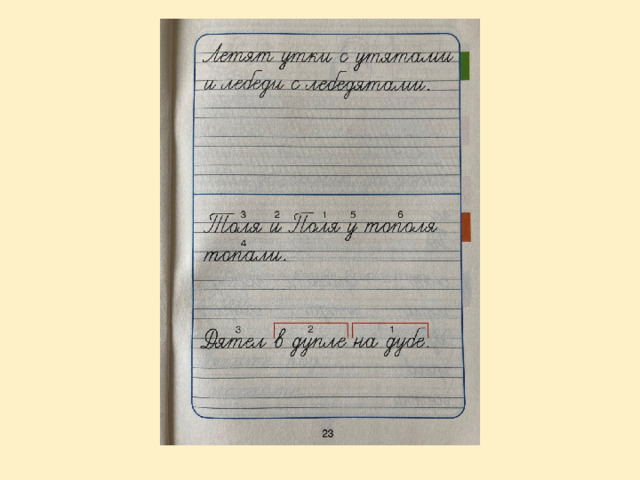 Летят утки с утятами
и лебеди с лебедятами.
3 2 1 5 6
Толя и Поля у тополя
4
топали.
3 2 1
Дятел в дупле на дубе.
23